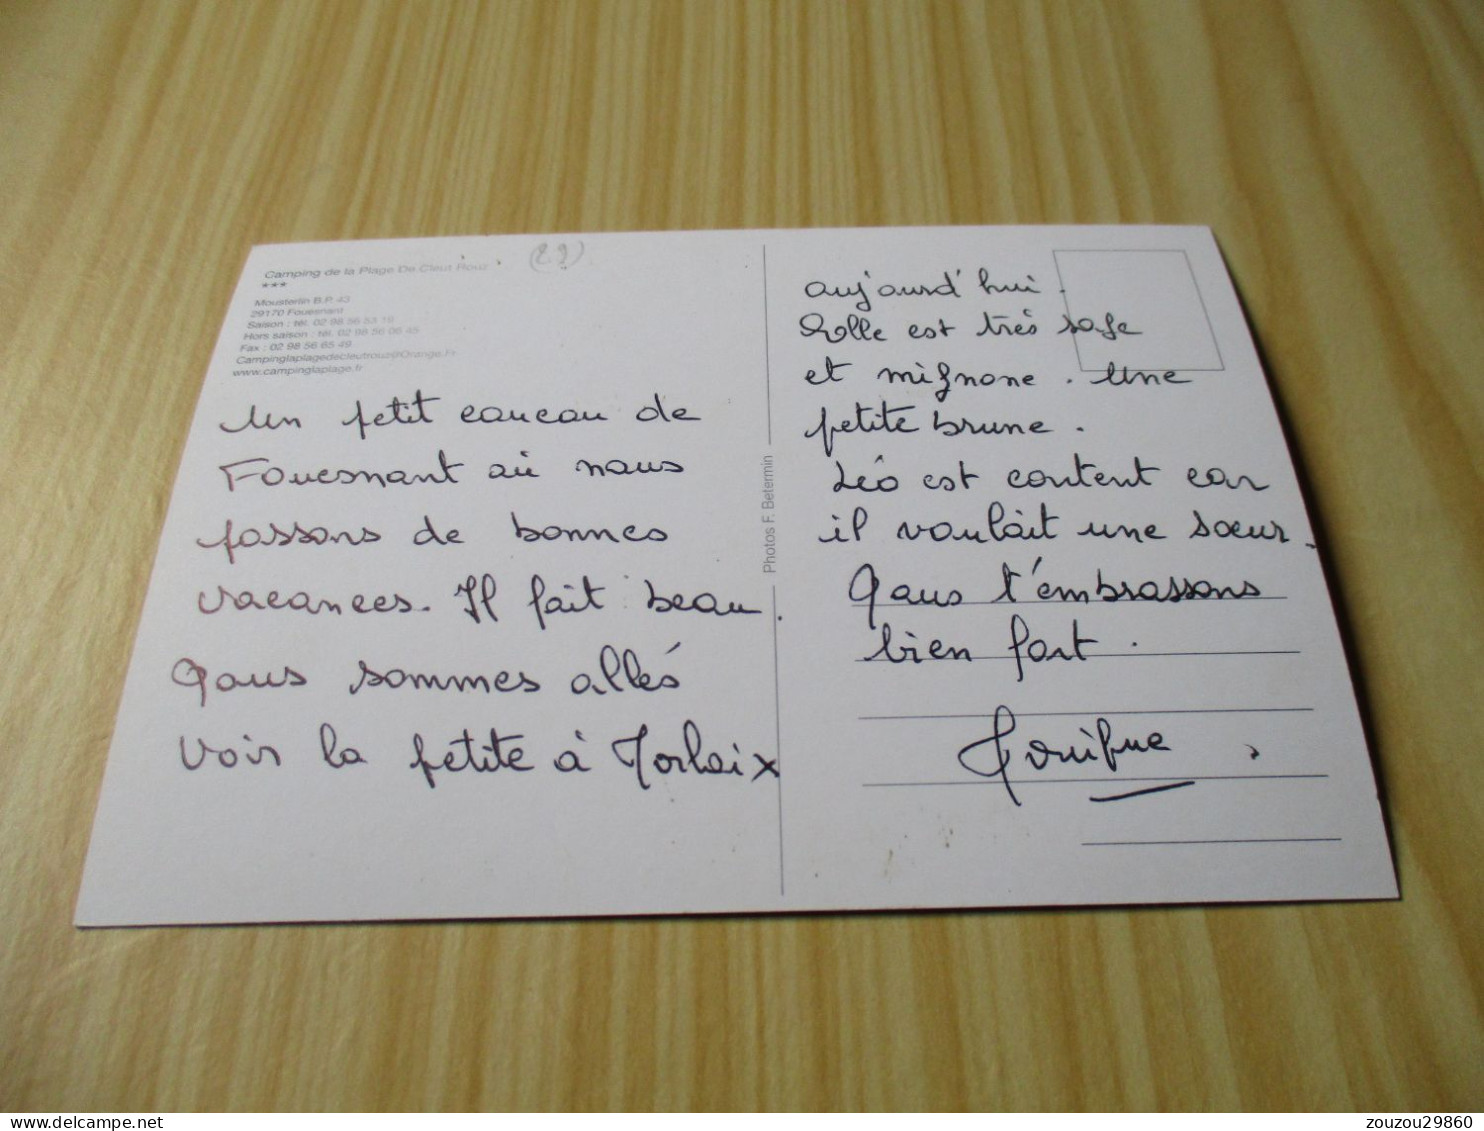 (29)
Camping de la Plage De Cleut Rouz
***
Mousterlin B.P. 43
29170 Fouesnant
Saison : tél. 02 98 56 53 19
Hors saison : tél. 02 98 56 06 45
Fax : 02 98 56 65 49
Campinglaplagedecleutrouz@Orange.Fr
www.campinglaplage.fr
Un petit coucou de
Fouesnant où nous
passons de bonnes
vacances. Il fait beau.
Nous sommes allés
voir la petite à Morlaix
Photos F. Betermin
aujourd'hui.
Elle est très sage
et mignone. Une
petite brune.
Léo est content car
il voulait une sœur.
Nous t'embrassons
bien fort.
zouzou29860